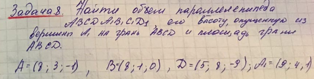 Задача 8. Найти объем параллелепипеда
ABCDA₁B₁C₁D₁, его высоту, опущенную из
вершины A₁ на грань ABCD и площадь грани
ABCD.
A=(8;3;-1) B=(8;1,0), D=(5;8;-8), A₁=(9;4,1)